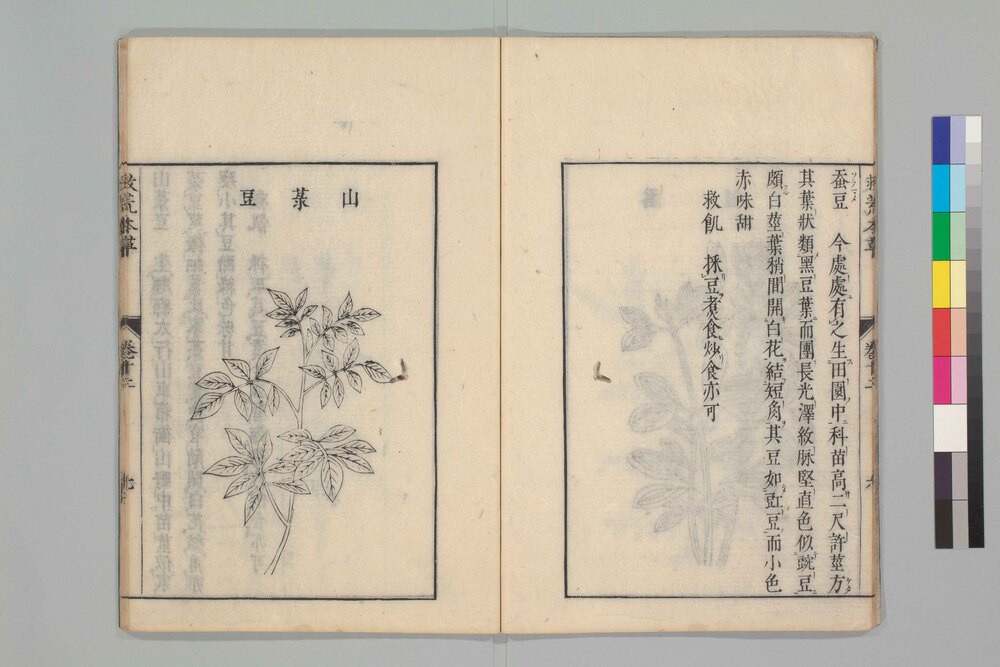 蚕豆 今處處有之生田園中科苗高二尺許莖方
其葉狀類黑豆葉而團長光澤紋脉堅直色似豌豆
頗白莖葉稍間開白花結短角其豆如豇豆而小色
赤味甜
救飢 採豆煮食炒食亦可
山菉豆
救荒本草
卷十三